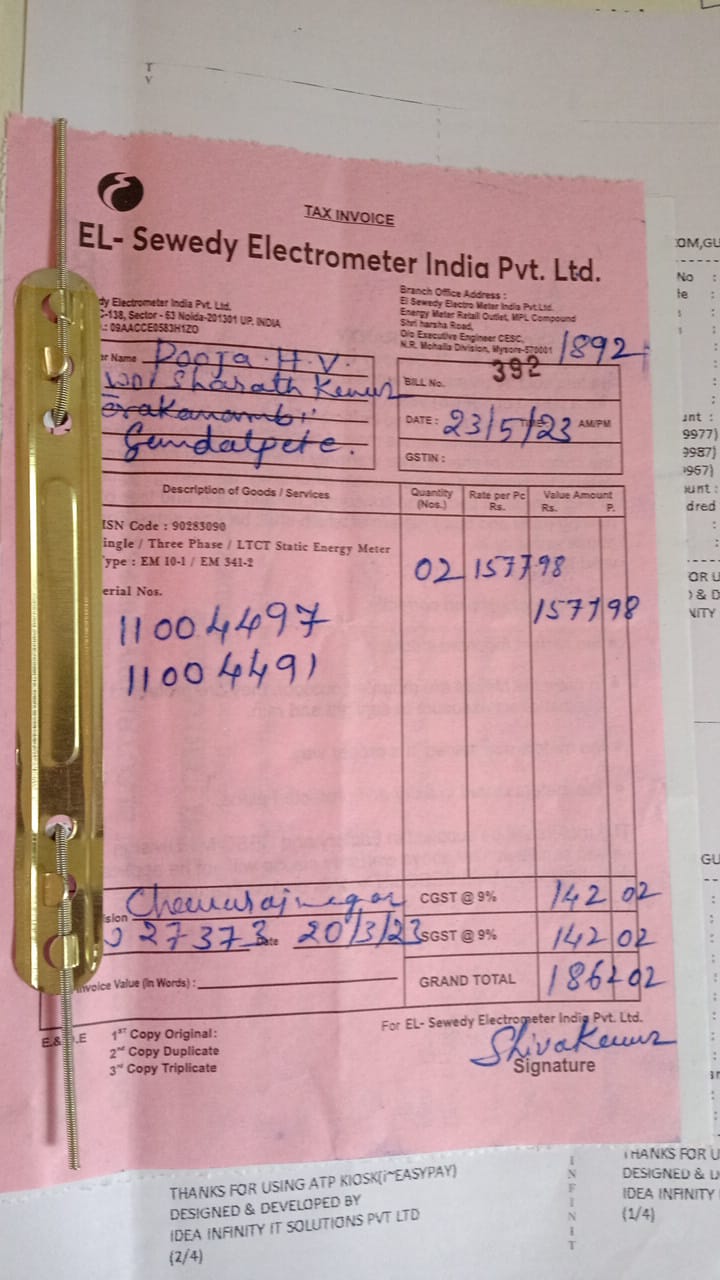 TAX INVOICE
EL- Sewedy Electrometer India Pvt. Ltd.
dy Electrometer India Pvt. Ltd.
C-138, Sector - 63 Noida-201301 UP. INDIA
.: 09AACCE0583H1ZO
Branch Office Address :
El Sewedy Electro Meter India Pvt.Ltd.
Energy Meter Retail Outlet, MPL Compound
Shri harsha Road,
O/o Executive Engineer CESC,
N.R. Mohalla Division, Mysore-570001
1892
er Name Pooja. H. V.
W/o/ Sharath Kumar
Gundalpete.
BILL No. 392
DATE : 23/5/23 AM/PM
GSTIN :
Description of Goods / Services Quantity (Nos.) Rate per Pc Rs. Value Amount Rs. P.
ISN Code : 90283090
ingle / Three Phase / LTCT Static Energy Meter
ype : EM 10-1 / EM 341-2
02 1577 98
erial Nos.
1577 98
11004497
11004491
sion Chamrajnagar CGST @ 9% 142 02
27373 Date 20/3/23 SGST @ 9% 142 02
nvoice Value (In Words) : GRAND TOTAL 1862 02
E.& O.E
1ST Copy Original :
2nd Copy Duplicate
3rd Copy Triplicate
For EL- Sewedy Electrometer India Pvt. Ltd.
Shivakumar
Signature
THANKS FOR USING ATP KIOSK(i~EASYPAY)
DESIGNED & DEVELOPED BY
IDEA INFINITY IT SOLUTIONS PVT LTD
(2/4)
I
N
F
I
N
I
T
THANKS FOR U
DESIGNED & D
IDEA INFINITY
(1/4)
T
V
COM,GU
No :
te :
unt :
9977)
9987)
9957)
unt:
dred
OR U
) & D
NITY
GU